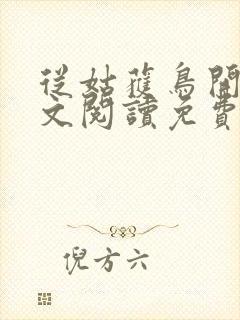 從姑獲鳥開
文閱讀免費
倪方六